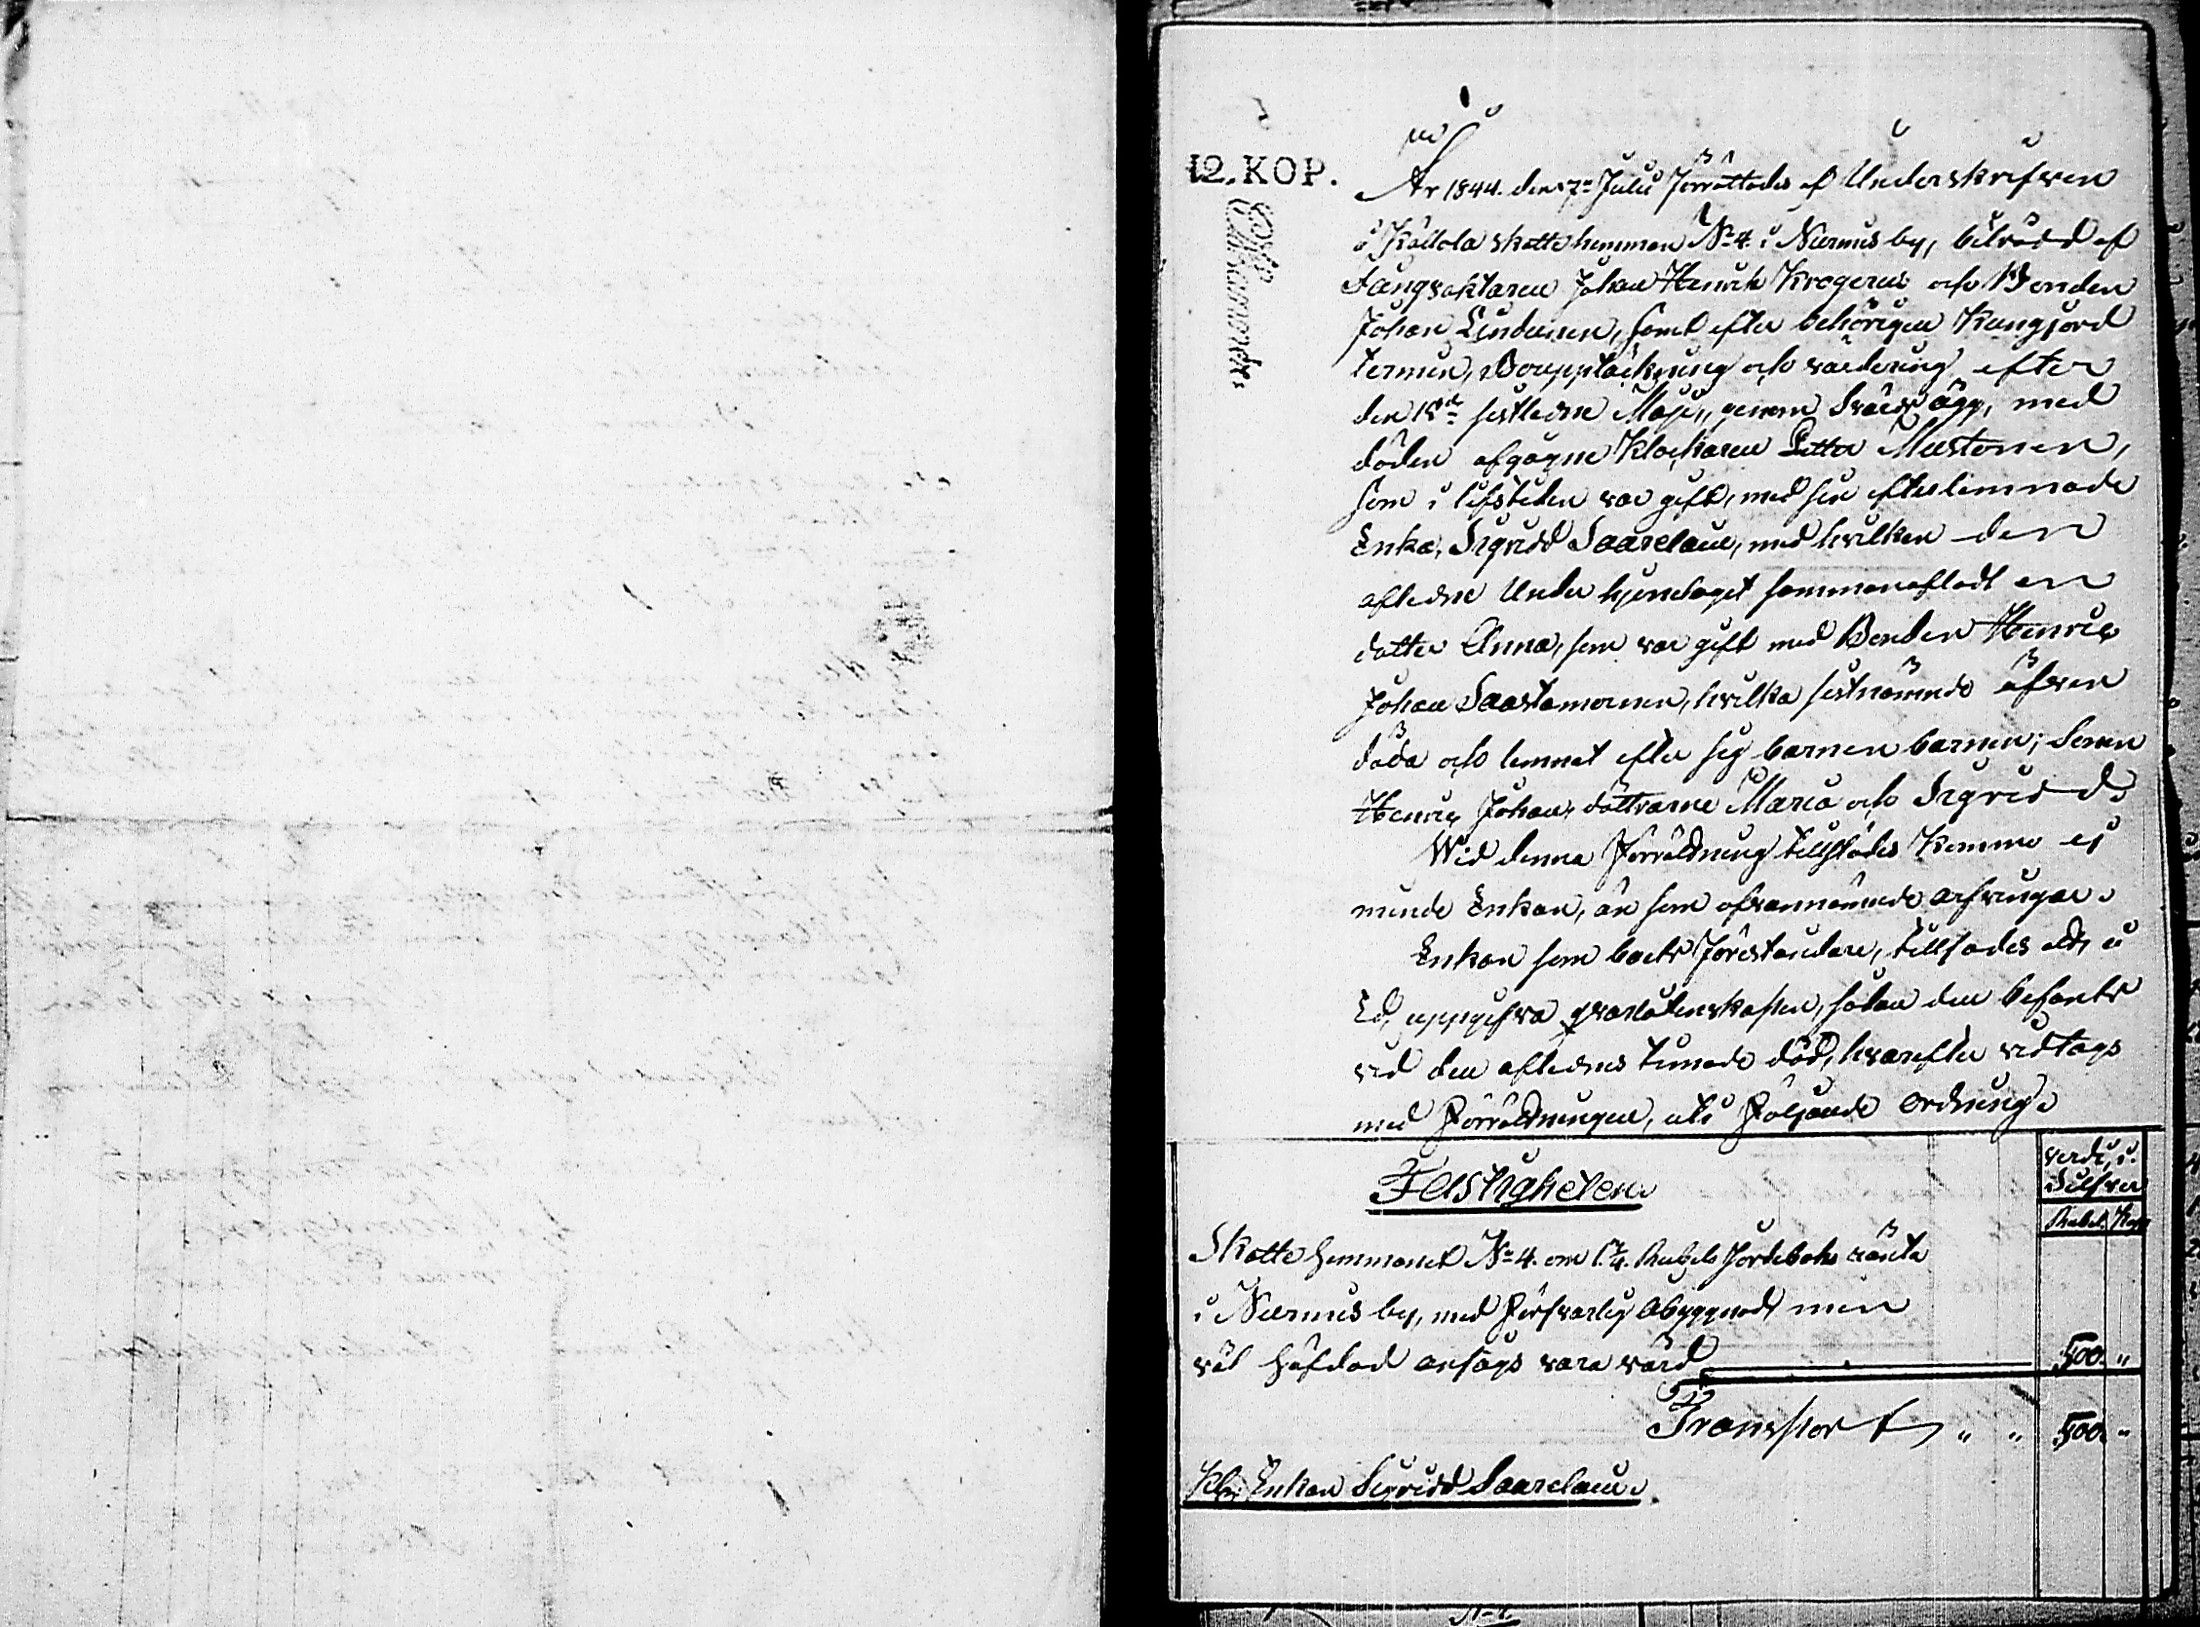 12. KOP.
År 1844. den 7de Julii förrättades af Underskrifven
i Kållola skatte hemman No 4. i Niemis by, biträdd af
Fångvaktaren Johan Henrik Krogerus och Bonden
Johan Lindeman, samt efter behörigen Kungjord
termin, Bouppteckning och värdering efter
den 15de sistledne Maji, genom Svåra ägg, med
döden afgågne Klockaren Petter Mustonen,
som i lifstiden var gift, med sin efterlemnade
Enka, Sigridd Saarelain, med hvilken den
aflidne Under hjonelaget sammanafladt en
dotter Anna, som var gift med Bonden Henric
Johan Saastamoinen, hvilka sistnämnde äfven
döda och lemnat efter sig barnen barnen; Sonen
Henric Johan, döttrarne Maria och Sigridd.
Wid denna Förrättning tillstädes Kommo ej
minde Enkan, än som ofvannämnde arfvingar.
Enkan som boets Föreståndare, tillsades att, å
Ed, uppgifva qvarlåtenskapen, sådan den befants
vid den aflidnes timade död, hvarefter vidtogs
med Förrättningen, uti Följande ordning.
Fastigheten
värde, i
Silfver
Rubel. Kop
Skatte hemmanet No 4. om 1 1/4. Rubels Jordeboks ränta
i Niemis by, med Försvarlig Åbyggnad, men
väl häfdad ansågs vara värd 500. "
Transport " " 500. "
Kl. Enkan Sigridd Saarelain.